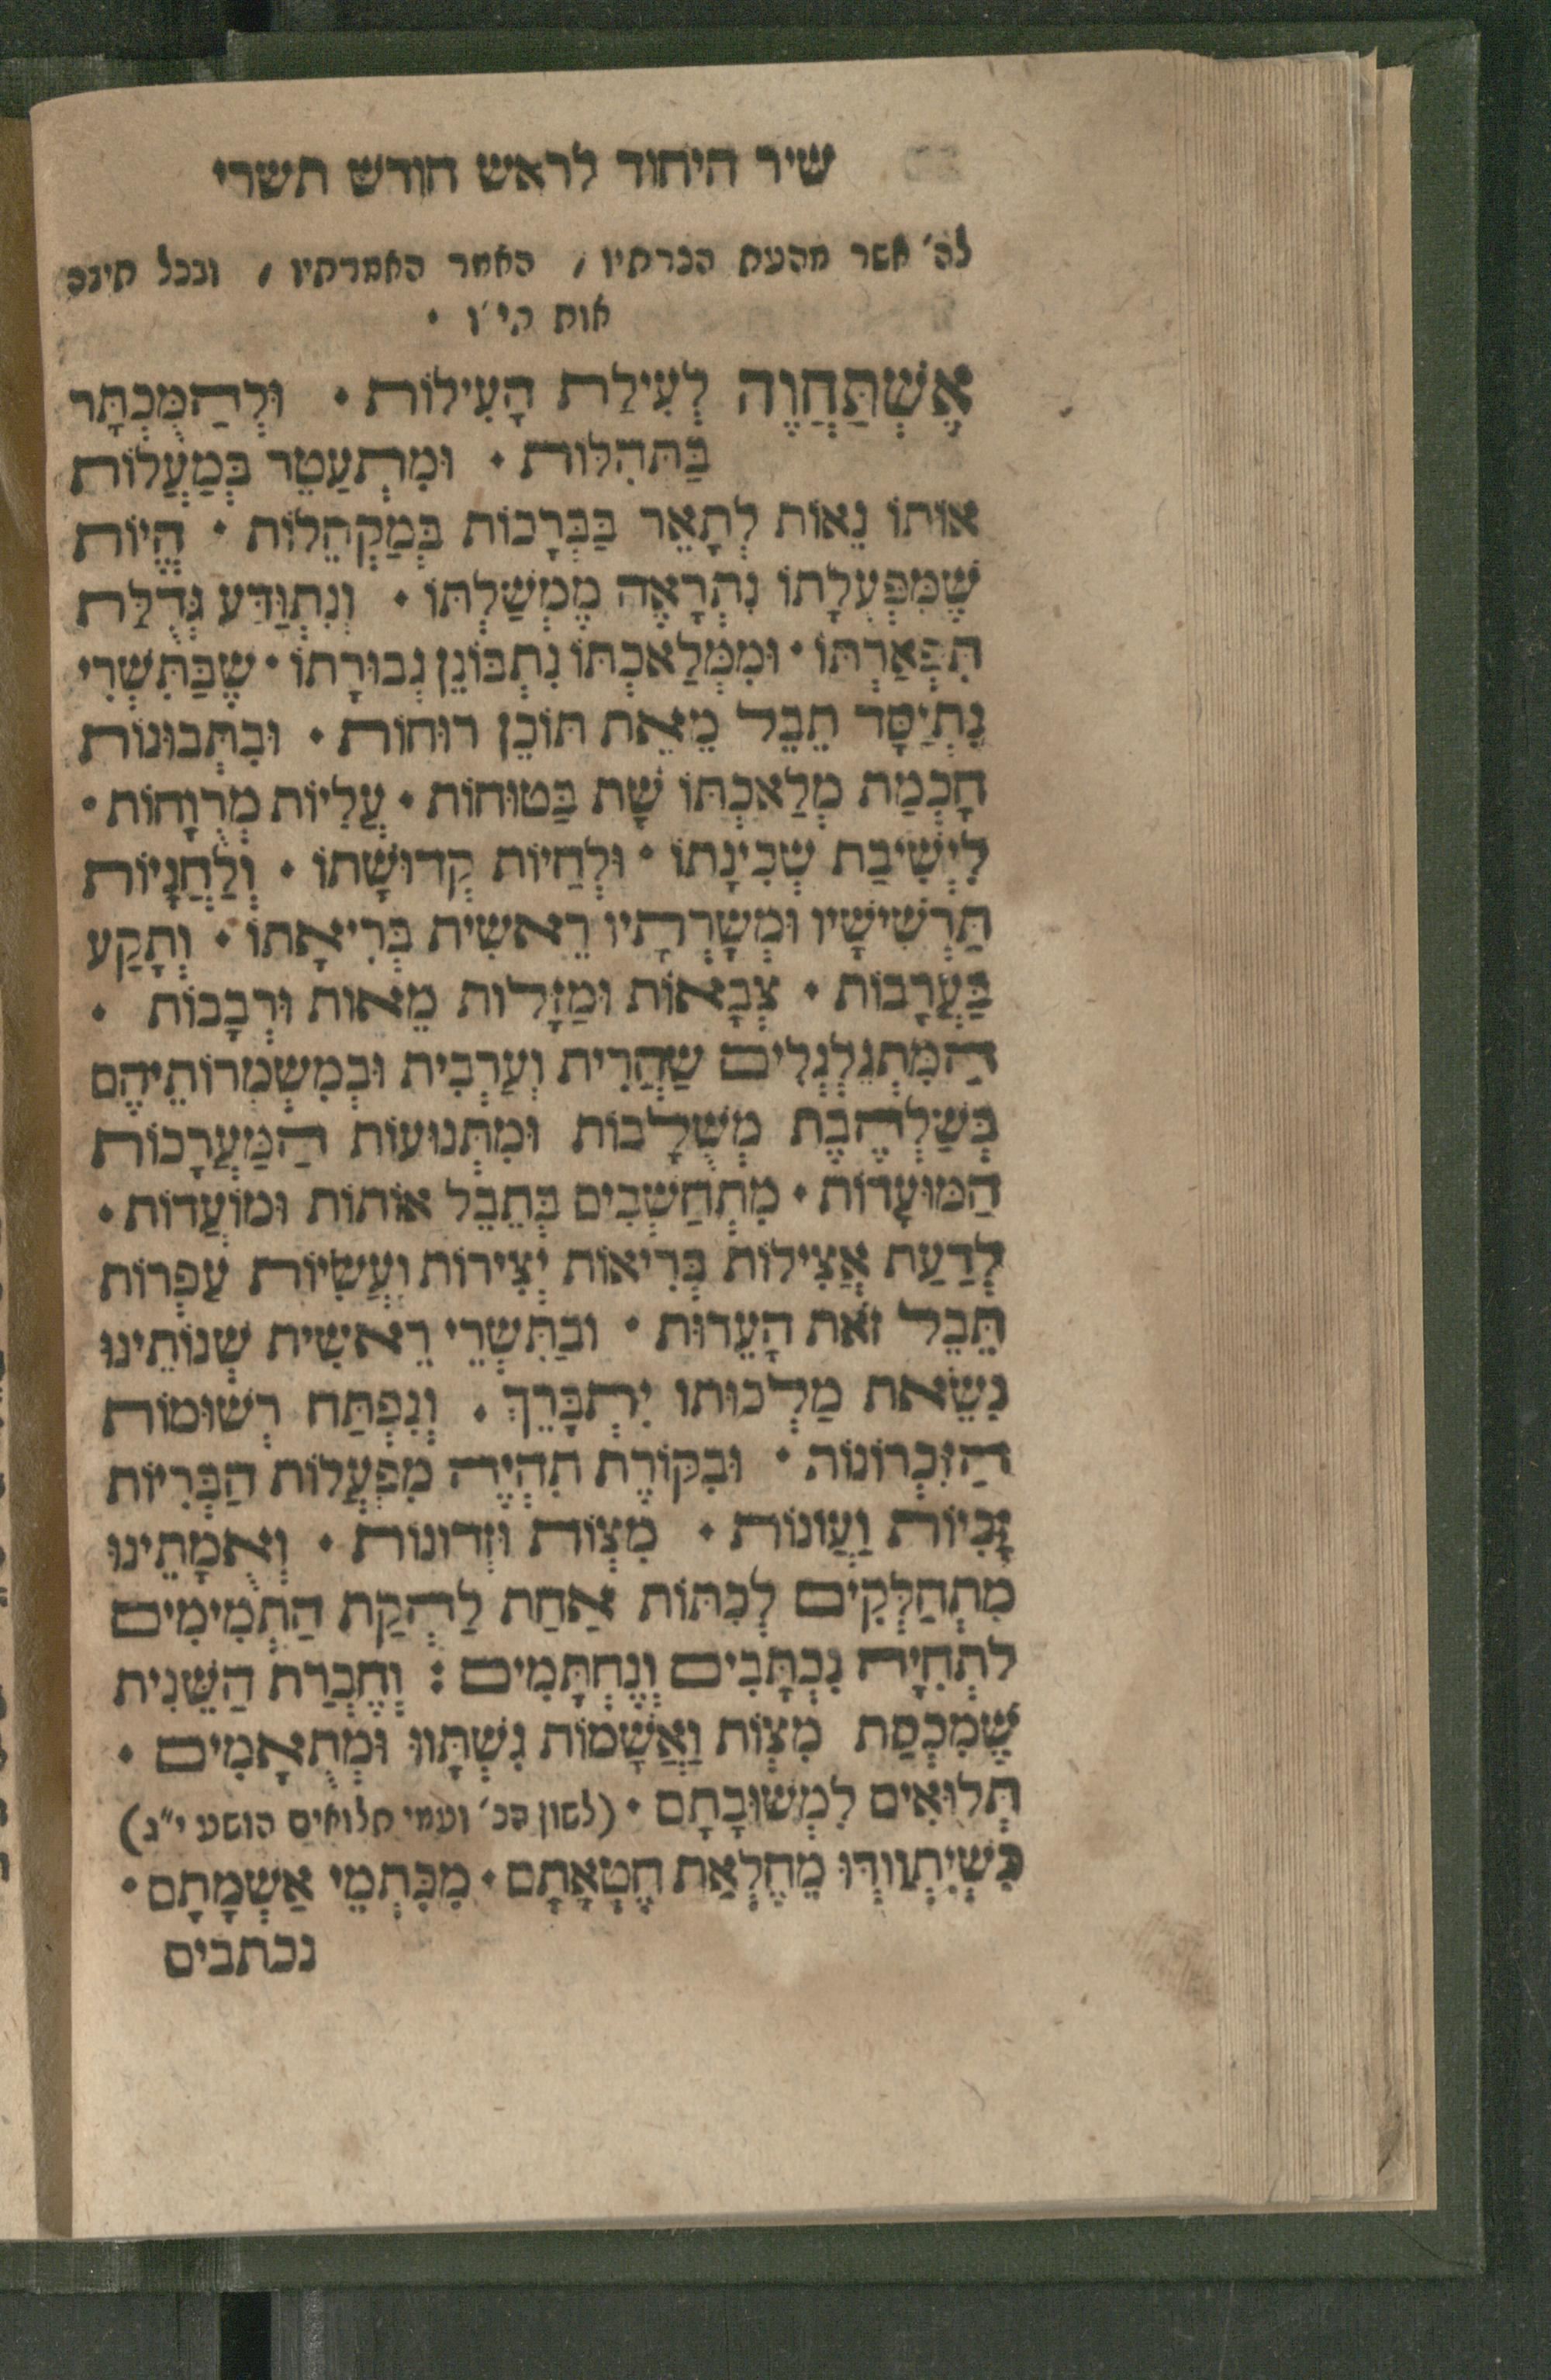 שיר היחוד לראש חודש תשרי
לה׳ אשר מהעת הכרתיו, האמר האמרתיו, ובכל תיבה
אות הי״ו ·
אֶשְׁתַּחֲוֶה לְעִילַת הָעִילוֹת · וּלְהַמֻּכְתָּר
בַּתּהִלּוֹת · וּמִתְעַטֵר בְּמַעֲלוֹת
אוֹתוֹ נָאוֹת לְתָאֵר בַּבְּרָכוֹת בְּמַקְהֵלוֹת · הֱיוֹת
שֶׁמִּפְּעֻלָתוֹ נִתְרָאֶה מֶמְשַׁלְתּוֹ · וְנִתְוַדַּע גְּדֻלַּת
תִפְאַרְתּוֹ · וּמִמְּלַאכְתּוֹ נִתְבּוֹנֵן גְבוּרָתוֹ · שֶׁבַּתִּשְׁרִי
נִתְיַסָּד תֵבֵל מֵאֵת תּוֹכֵן רוּחוֹת · וּבִתְּבוּנוֹת
חָכְמַת מְלַאכְתּוֹ שָׁת בַּטוּחוֹת · עֲלִיּוֹת מְרֻוָחוֹת ·
לִיְשִׁיבַת שְׁכִינָתוֹ · וּלְחַיּוֹת קְדוּשָּׁתוֹ · וְלַחֲנָיוֹת
תַּרְשִׁישָׁיו וּמְשָׁרְתָיו רֵאשִׁית בְּרִיאָתוֹ · וְתָקַע
בַּעֲרָבוֹת · צְבָאוֹת וּמַזָּלוֹת מֵאוֹת וּרְבָבוֹת ·
הַמִּתְגַלְגְלִים שַׁחֲרִית וְעַרְבִית וּבְמִשְׁמְרוֹתֵיהֶם
כְּשַׁלְהֶבֶת מְשֻׁלָבוֹת וּמִתְּנוּעוֹת הַמַּעֲרָכוֹת
הַמּוּעָדוֹת · מִתְחַשְּׁבִים בְּתֵבֵל אוֹתוֹת וּמוֹעֲדוֹת ·
לְדַעַת אֲצִילוֹת בְּרִיאוֹת יְצִירוֹת וַעֲשִׂיּוֹת עַפְרוֹת
תֵּבֵל זֹאת הָעֵדוּת · וּבַתִּשְׁרֵי רֵאשִׁית שְׁנוֹתֵינוּ
נִשֵּׂאת מַלְכוּתוֹ יִתְבָּרֵךְ · וְנִפְתַּח רְשׁוּמוֹת
הַזִּכְרוֹנוֹת · וּבִקּוֹרֶת תִּהְיֶה מִפְעֲלוֹת הַבְּרִיּוֹת
זָכִיּוֹת וַעֲוֹנוֹת · מִצְוֹת וּזְדוֹנוֹת · וְאֻמָּתֵינוּ
מִתְחַלְּקִים לְכִתּוֹת אַחַת לַהְקַת הַתְּמִימִים
לִתְחִיָּה נִכְתָּבִים וְנֶחְתָּמִים : וְחֶבְרַת הַשֵּׁנִית
שֶׁמִכְסַת מִצְוֹת וַאֲשָׁמוֹת נִשְׁתָּווּ וּמְתֻאָמִים ·
תְּלוּאִים לִמְשׁוּבָתָם · (לשון הכ׳ ועמי תלואים הושע י״א)
כְּשֶׁיִתְוַודּוּ מֵחֶלְאַת חֶטְאָתָם · מִכִּתְמֵי אַשְׁמָתָם ·
נכתבים